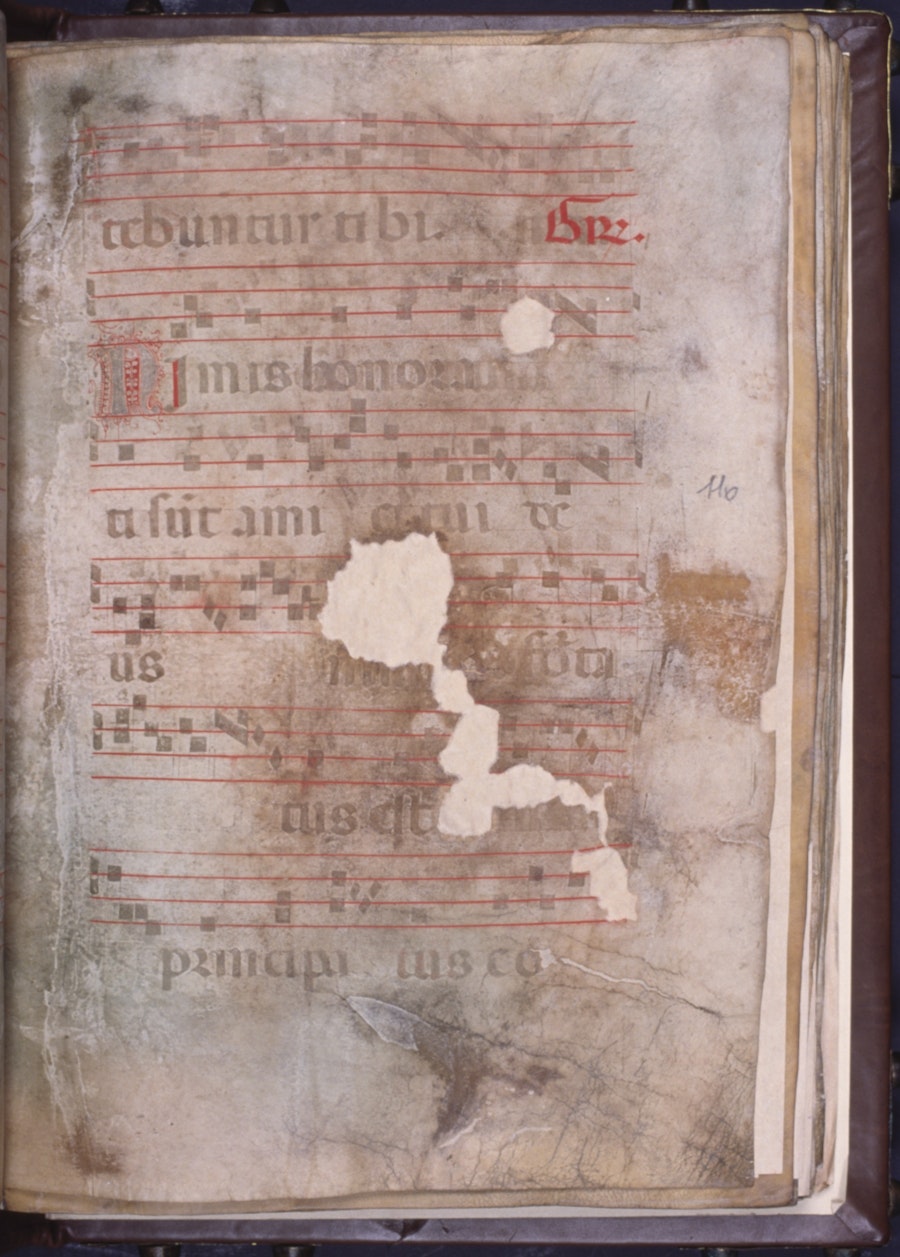 tebuntur tibi. Gre.
Nimis honorati
ti sūt ami ci tui de
us
tus est
principa tus eo
116